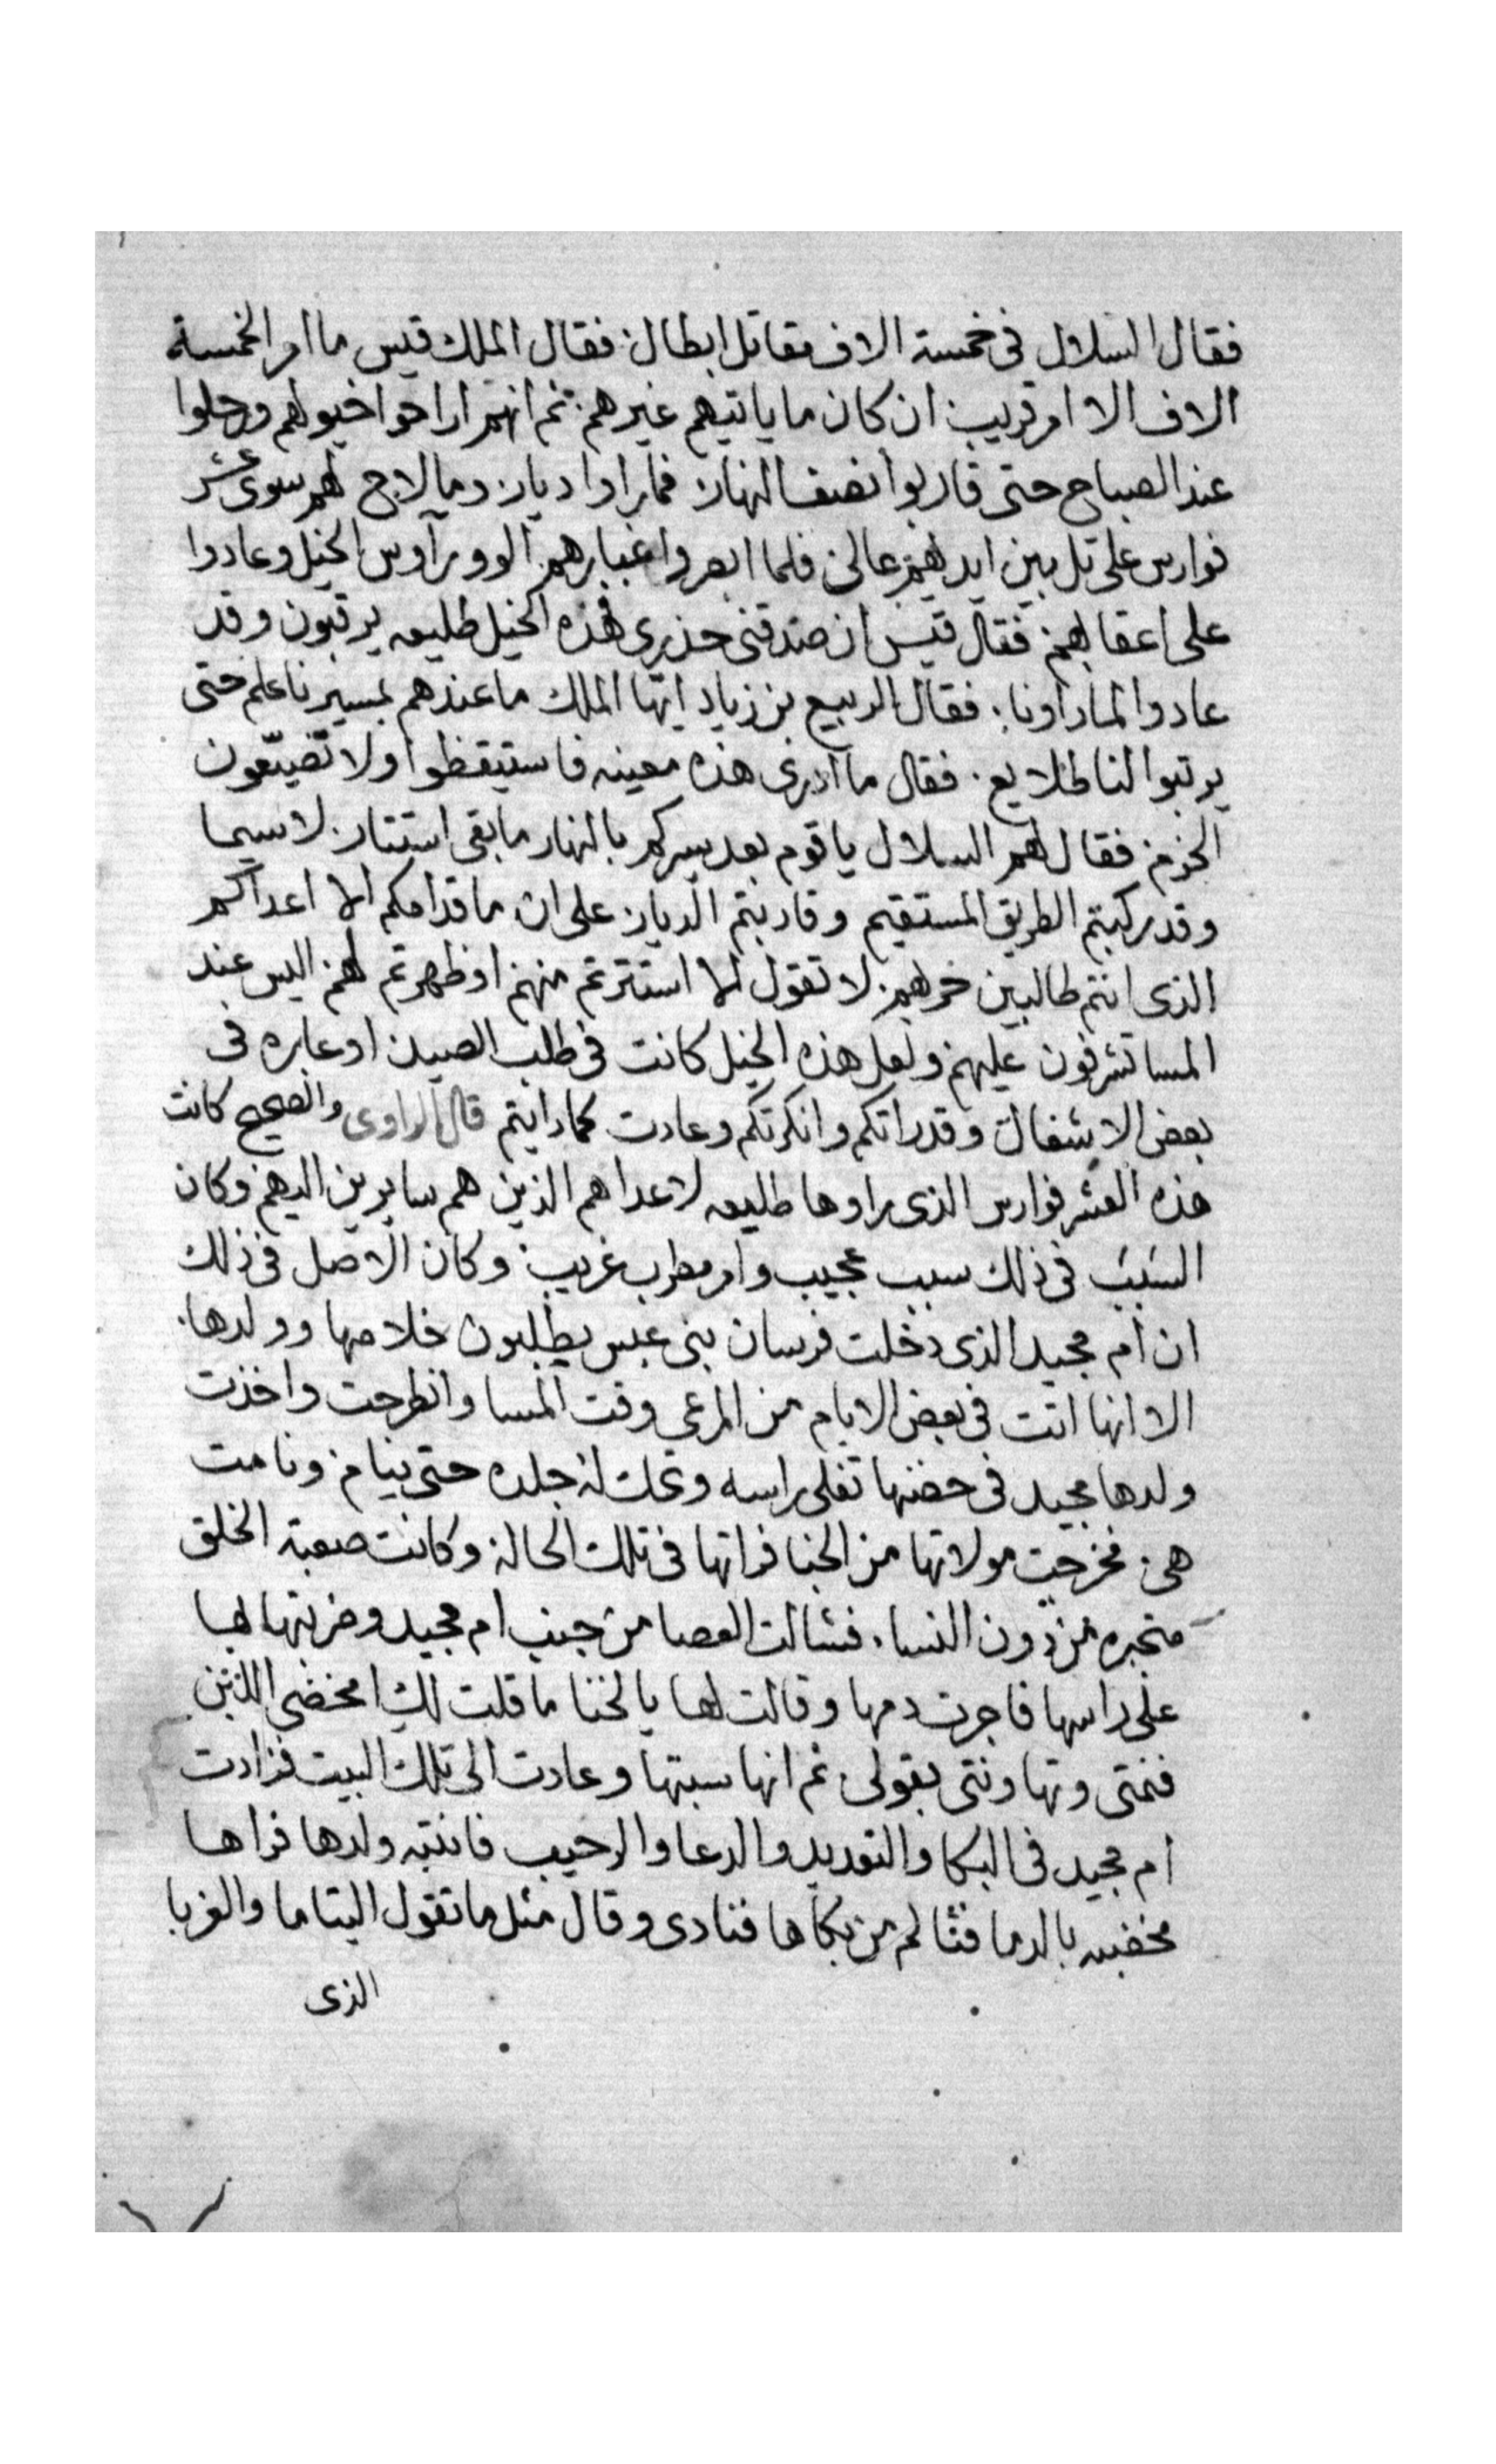 فقال السلال فى خمسة الاف مقاتل ابطال فقال الملك قيس ما امر الخمسة
الاف الا امر قريب ان كان ما ياتيهم غيرهم ثم انهم اراحوا خيولهم ورحلوا
عند الصباح حتى قاربوا نصف النهار فما راوا ديار وما لاح لهم سوى عشر
فوارس على تل بين ايديهم عالى فلما ابصروا غبارهم الوو رآوس الخيل وعادوا
على اعقابهم فقال قيس ان صدقنى حذرى فهذه الخيل طليعه يرقبون وقد
عادوا لما راونا فقال الربيع بن زياد ايها الملك ما عندهم بمسيرنا علم حتى
يرتبوا لنا طلايع فقال ما ادرى هذه معينه فاستيقظوا ولا تضيّعون
الحزم فقال لهم السلال يا قوم بعد سيركم بالنهار ما بقى استتار لا سيما
وقد ركبتم الطريق المستقيم وقاربتم الديار على ان ما قدامكم الا اعداكم
الذى انتم طالبين حربهم لا تقول الا استترتم منهم او ظهرتم لهم اليس عند
المسا تشرفون عليهم ولعل هذه الخيل كانت فى طلب الصيد او عابره فى
بعض الاشغال وقد راتكم وانكرتكم وعادت كما رايتم قال الراوى والصحيح كانت
هذه العشر فوارس الذى راوها طليعه لاعداهم الذين هم سايرين اليهم وكان
السَبَبَ فى ذلك سبب عجيب وامر مطرب غريب وكان الاصل فى ذلك
ان ام مجيد الذى دخلت فرسان بنى عبس يطلبون خلاصها وولدها
الا انها اتت فى بعض الايام من المرعى وقت المسا وانطرحت واخذت
ولدها مجيد فى حضنها تفلى راسه وتحك له جلده حتى ينام ونامت
هى فخرجت مولاتها من الخبا فراتها فى تلك الحاله وكانت صعبة الخلق
متجبره من دون النسا فشالت العصا من جنب ام مجيد وضربتها بها
على راسها فاجرت دمها وقالت لها يا لخنا ما قلت لكِ امخضى اللبن
فنمتى وتهاونتى بقولى ثم انها سبتها وعادت الى تلك البيت فزادت
ام مجيد فى البكا والتعديد والدعا والرحيب فانتبه ولدها فراها
مخضبه بالدما فتالم من بكاها فنادى وقال مثل ما تقول اليتاما والغربا
الذى